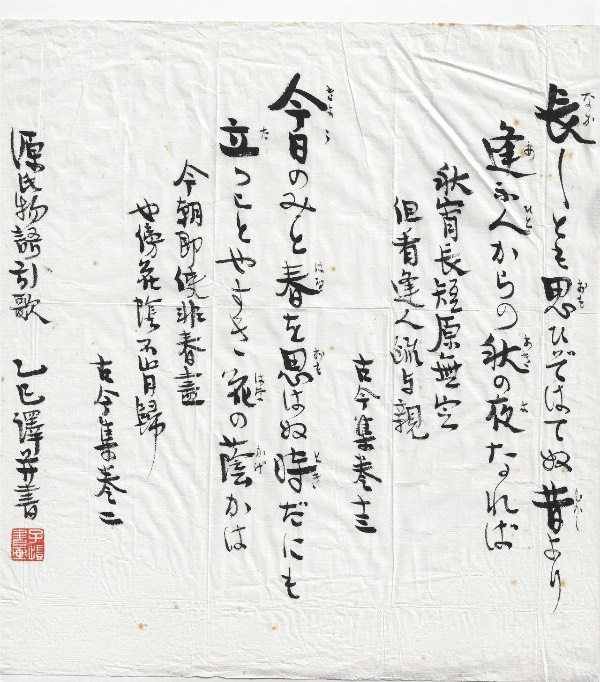 長しとも思ひぞはてぬ昔より
逢ふ人からの秋の夜なれば
秋宵長短原無定
但看逢人疏与親
古今集巻十三
今日のみと春を思はぬ時だにも
立つことやすき花の蔭かは
今朝即使非春盡
也傍花陰不肯歸
古今集巻二
源氏物語引歌 乙巳譯并書